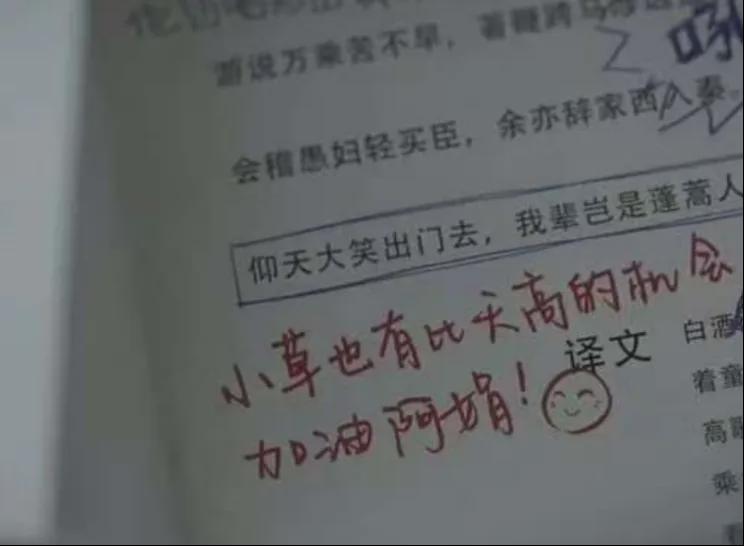 游说万乘苦不早，著鞭跨马涉远
会稽愚妇轻买臣，余亦辞家西入秦。
仰天大笑出门去，我辈岂是蓬蒿人
小草也有比天高的机会
译文
加油阿娟！
白酒
着童
高歌
乘